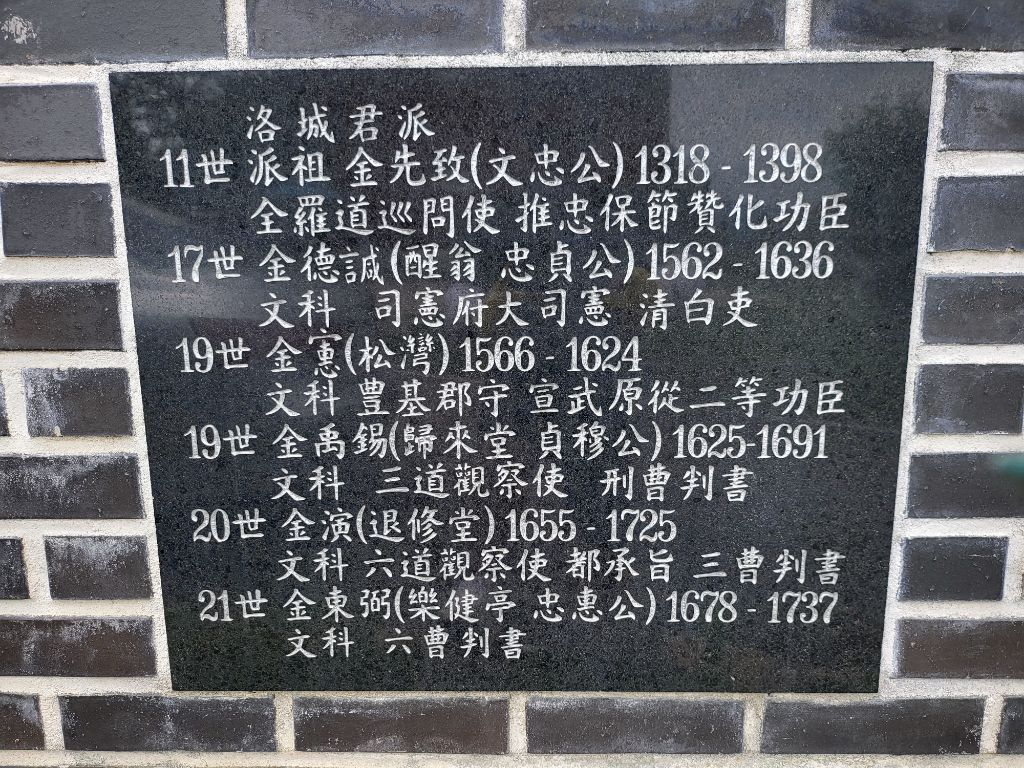 洛城君派
11世 派祖 金先致(文忠公) 1318 - 1398
全羅道巡問使 推忠保節贊化功臣
17世 金德諴(醒翁 忠貞公) 1562 - 1636
文科 司憲府大司憲 清白吏
19世 金憲(松灣) 1566 - 1624
文科 豊基郡守 宣武原從二等功臣
19世 金禹錫(歸來堂 貞穆公) 1625-1691
文科 三道觀察使 刑曹判書
20世 金演(退修堂) 1655 - 1725
文科 六道觀察使 都承旨 三曹判書
21世 金東弼(樂健亭 忠惠公) 1678 - 1737
文科 六曹判書